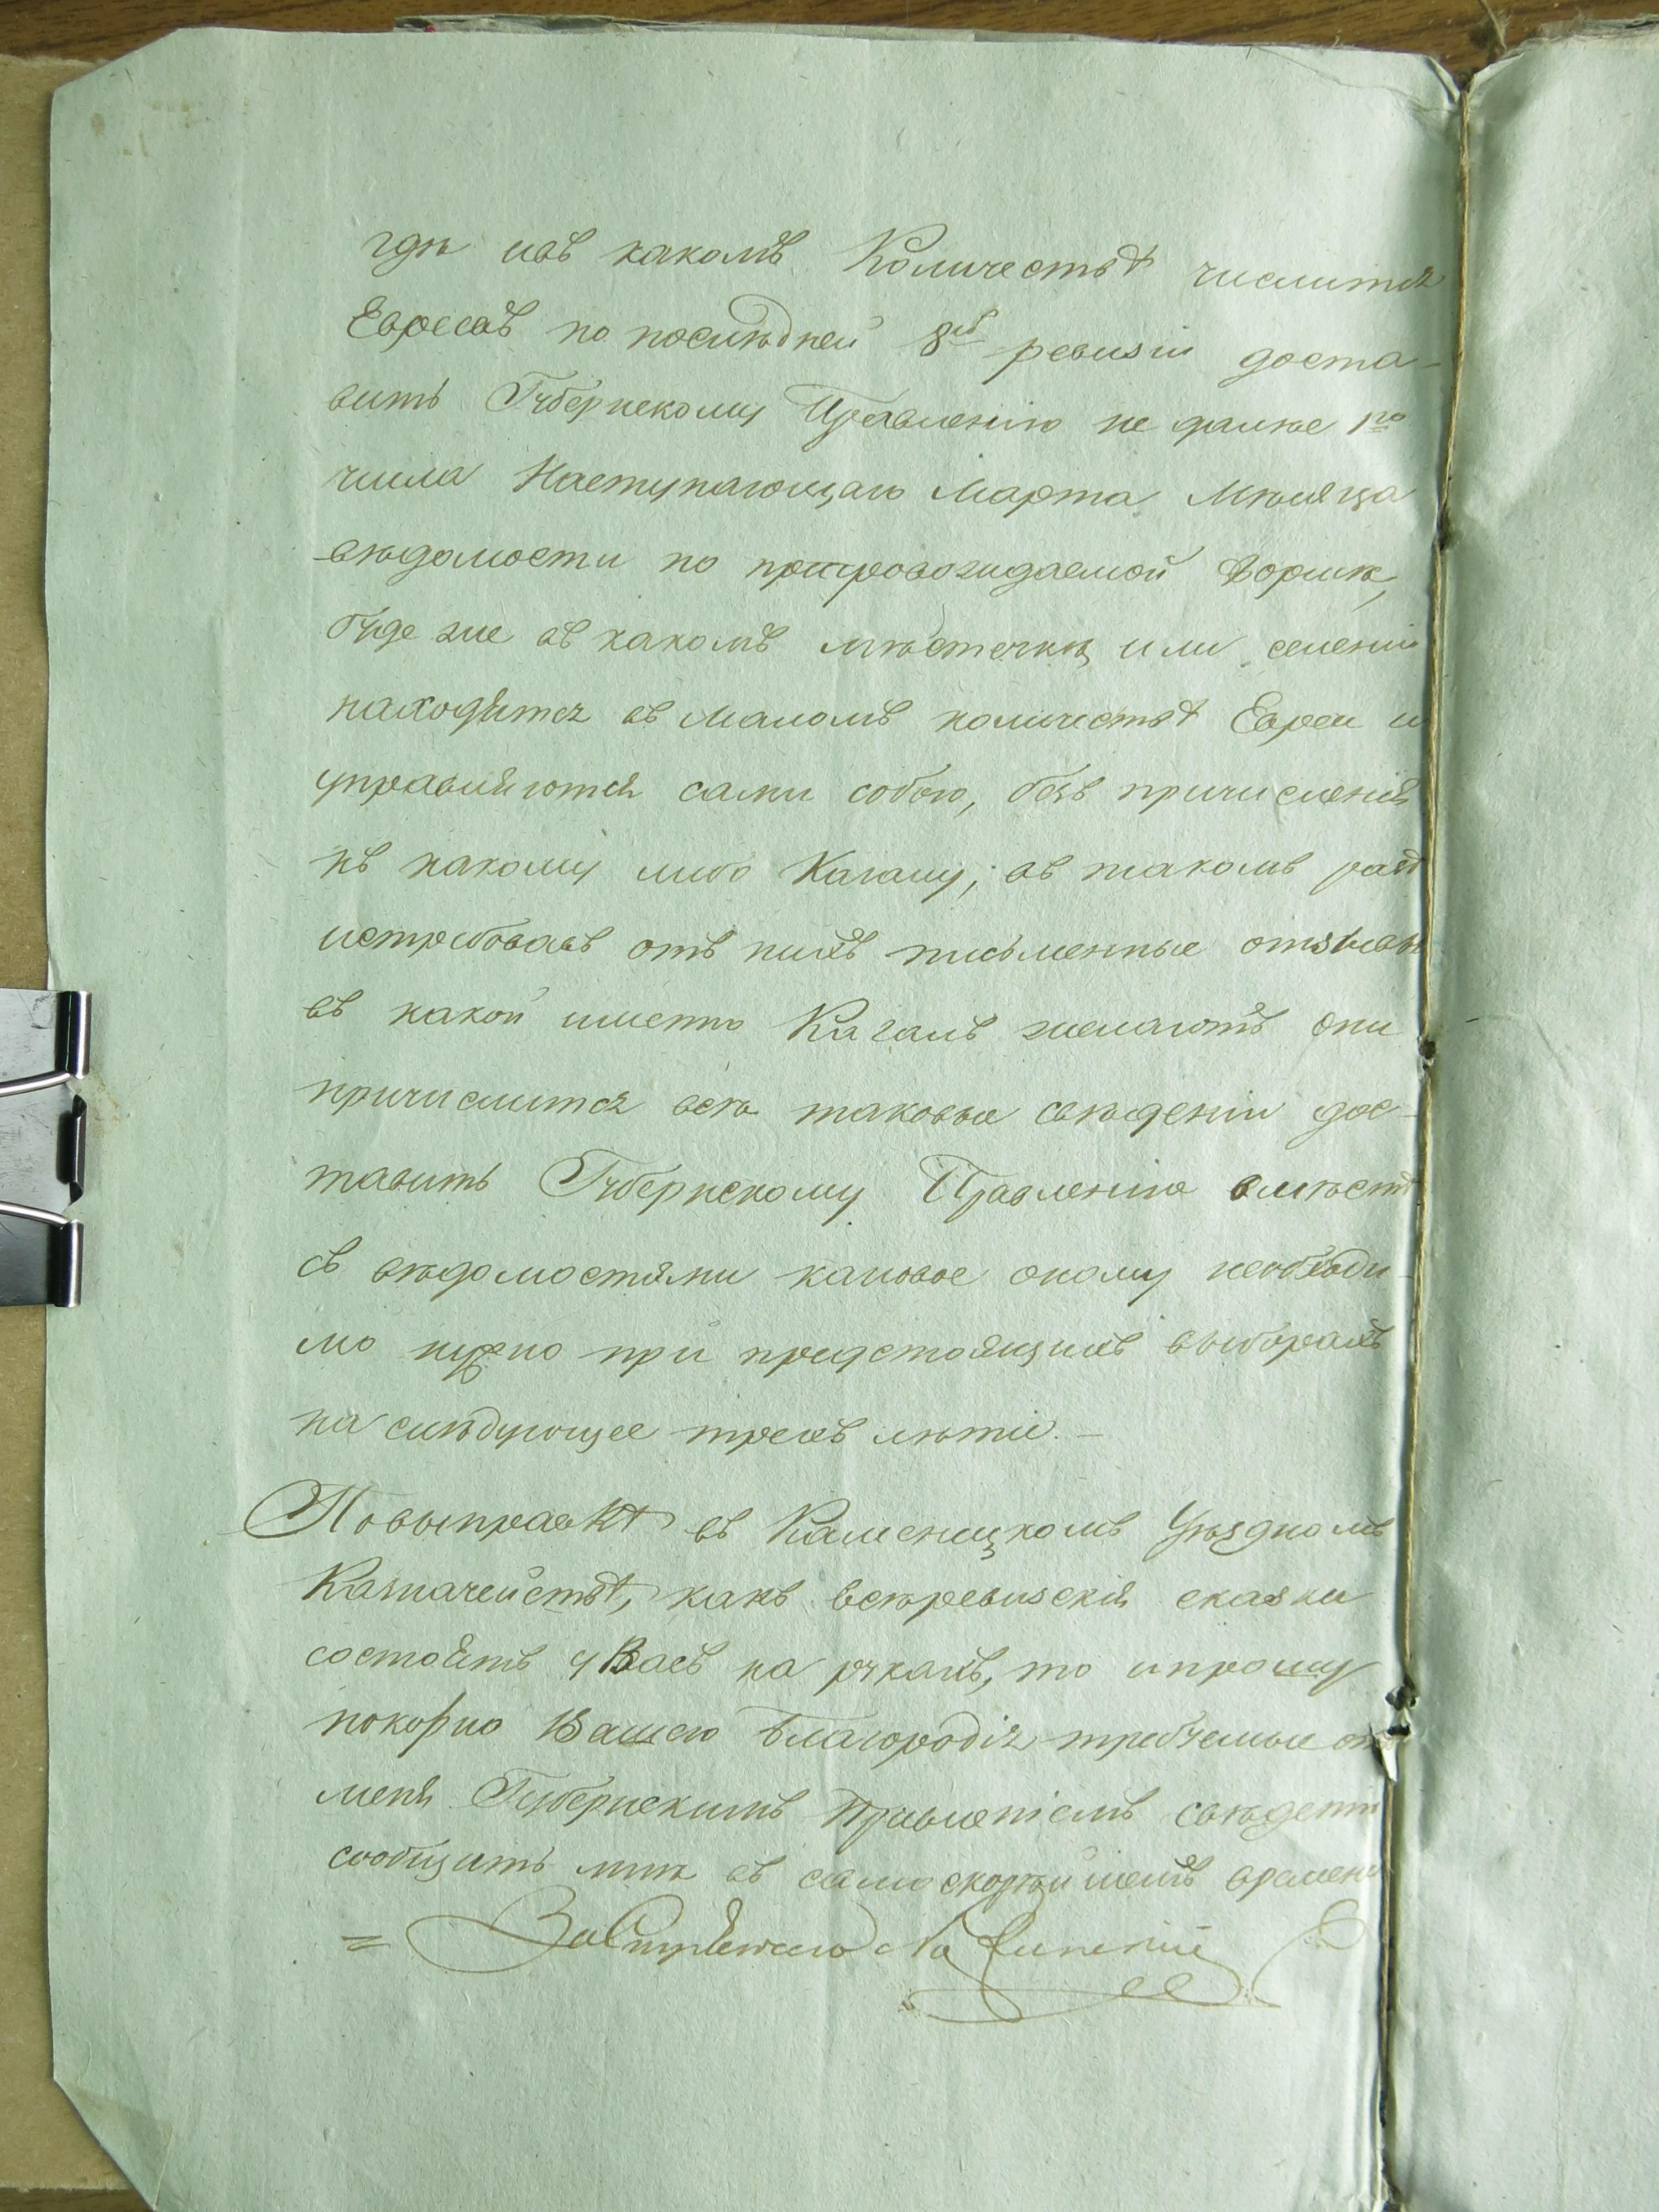 гдѣ ивъ какомъ Количествѣ числится
Евреевъ по послѣдней 8й ревизіи доста-
вить Губернскому Правленію не далѣе 1го
числа Наступающаго Марта Мѣсяца
вѣдомости по препровождаемой Формѣ,
буде же въ какомъ мѣстечкѣ или селеніи
находятся въ маломъ количествѣ Евреи и
управляются сами собою, безъ причисленія
къ какому либо Кагалу; въ такомъ разѣ
истребовавъ отъ нихъ письменные отзывы
въ какой именно Кагалъ желаютъ они
причислится всѣ таковые свѣденіи дос-
тавить Губернскому Правленію вмѣстѣ
съ вѣдомостями каковое оному необходи-
мо нужно при предстоящихъ выборахъ
на слѣдующее трехъ лѣтіе. —
Повыправкѣ въ Каменицкомъ Уѣздномъ
Казначействѣ, какъ всѣревизскія сказки
состоятъ уВасъ на рукахъ, то ипрошу
покорно Вашего Благородія требуемые отъ
меня Губернскимъ Правленіемъ свѣдении
сообщить мнѣ въ самоскорѣйшемъ времени